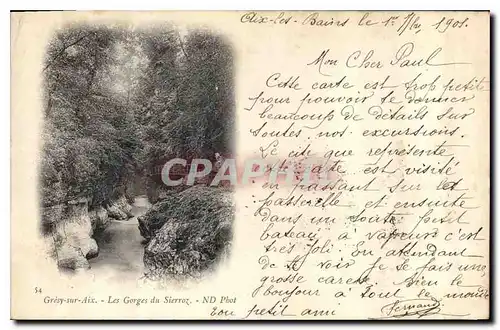 Aix-les-Bains le 1er 7bre 1901.
Mon Cher Paul
Cette carte est trop petite
pour pouvoir te donner
beaucoup de détails sur
toutes nos excursions.
Le site que représente
cette carte est visité
en passant sur la
passerelle et ensuite
dans un tout petit
bateau à vapeur c'est
très joli En attendant
de te voir je te fais une
grosse caresse Bien le
bonjour à tout le monde
Ton petit ami Fernand
CPARAMA.COM
54 Grésy-sur-Aix. - Les Gorges du Sierroz. - ND Phot